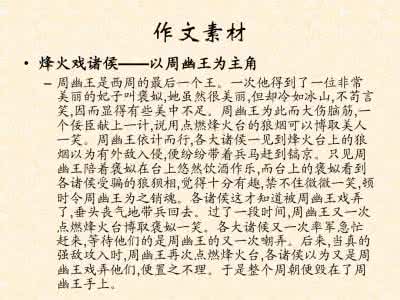 作文素材
• 烽火戏诸侯——以周幽王为主角
– 周幽王是西周的最后一个王。一次他得到了一位非常
美丽的妃子叫褒姒,她虽然很美丽,但却冷如冰山,不苟言
笑,因而显得有些美中不足。周幽王为此而大伤脑筋,一
个佞臣献上一计,说用点燃烽火台的狼烟可以博取美人
一笑。周幽王依计而行,各大诸侯一见到烽火台上的狼
烟以为有外敌入侵,便纷纷带着兵马赶到镐京。只见周
幽王陪着褒姒在台上悠然饮酒作乐,而台上的褒姒看到
各诸侯受骗的狼狈相,觉得十分有趣,禁不住微微一笑,顿
时令周幽王为之销魂。各诸侯这才知道被周幽王戏弄
了,垂头丧气地带兵回去。过了一段时间,周幽王又一次
点燃烽火台博取褒姒一笑。各大诸侯又一次率军急忙
赶来,等待他们的是周幽王的又一次嘲弄。后来,当真的
强敌攻入时,周幽王再次点燃烽火台,各诸侯以为又是周
幽王戏弄他们,便置之不理。于是整个周朝便毁在了周
幽王手上。